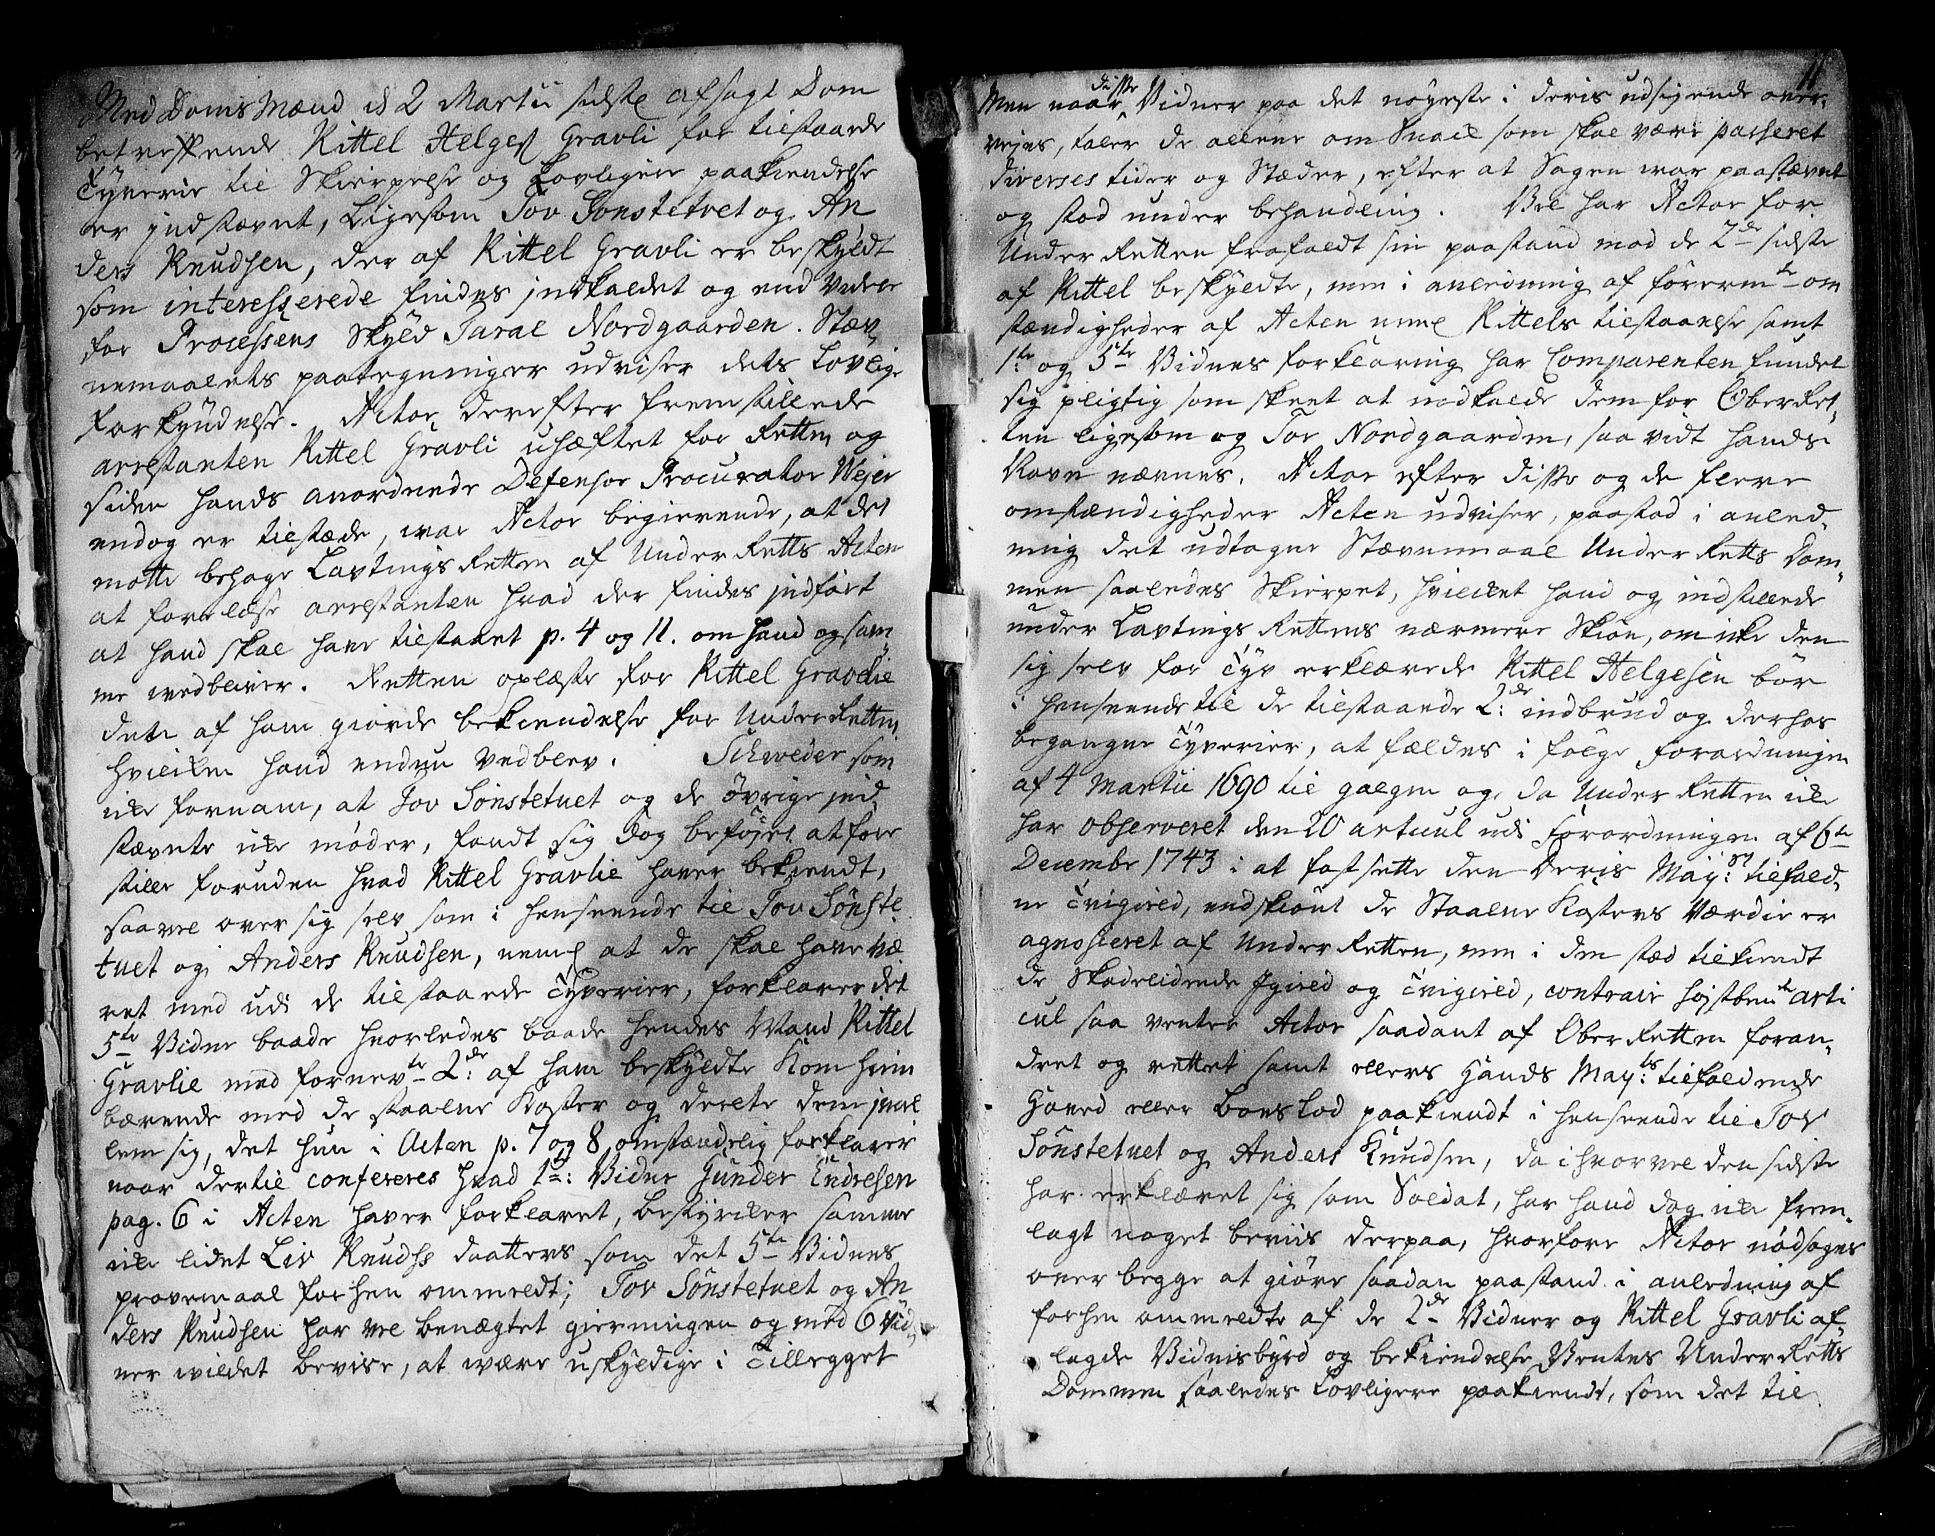 Med Doms Mænd d 2 Martii sidstl afsagt Dom
betreffende Kittel Helges Gravli for tilstaaede
Tÿverie til Skierpelse og Lovligere paakiendelse
er jndstævnt, Ligesom Tov Sønstetvet og An
ders Knudsen, der af Kittel Gravli er beskyldt
som interesserede findes jndkaldet og end videre
for Processens Skyld Taral Nordgaarden. Stæv
nemaalets paategninger udviser dets Lovlige
Forkyndelse. Actor derefter fremstillede
arrestanten Kittel Gravli uhæftet for Retten og
siden hands anordnede Defensor Procurator Wejer
endog er tilstæde, war Actor begierende, at det
motte behage Lavtings Retten af Under Retts Acten
at forelæse arrestanten hvad der findes jndført
at hand skal have tilstaaet p. 4 og 11. om hand og sam
me vedbliver. Retten oplæste for Kittel Gravlie
den af ham giorde bekiendelse for Under Retten
hvilken hand endnu vedblev. Schweder som
ike fornam, at Tov Sønstetvet og de øvrige jnd
stævnte ike møder, fandt sig dog beføjet at fore
stille foruden hvad Kittel Gravlie haver bekiendt,
saavel over sig selv som i henseende til Tov Sønste
tvet og Anders Knudsen, neml at de skal have væ
ret med udi de tilstaaede Tyverier, forklarer det
5te Vidne baade hvorledes baade hendes Mand Kittel
Gravlie med fornev te 2de af ham beskyldte Kom hiem
bærende med de staalne Koster og deelte dem jmel
lem sig, det hun i Acten p. 7 og 8 omstændelig forklarer
naar dertil confereres hvad 1te Vidne Gunder Endresen
pag. 6 i Acten haver forklaret, bestyrker samme
ike lidet Liv Knudss daatters som det 5te Vidnes
provemaal forhen ommeldt; Tov Sønstetvet og An
ders Knudsen har vel benægtet gierningen og med 6 Vid
ner vildet bevise, at være uskyldige i Tillegget
11
Men naar disse Vidner paa det nøyeste i deris udsigende over
vejes, taler de allene om Snak som skal være passeret
diverses tider og Stæder, efter at Sagen war paastævnt
og stod under behandling. Vel har Actor for
Under Retten frafaldt sin paastand mod de 2de sidste
af Kittel beskyldte, men i anledning af førerm te om
stændigheder af Acten neml Kittels tilstaaelse samt
1te og 5te Vidnes forklaring har Comparenten fundet
sig pligtig som skeet at indkalde dem for Ober Ret
ten ligesom og Tor Nordgaarden, saa vidt hands
Navn nævnes. Actor efter disse og de flere
omstændigheder Acten udviser, paastod i anled
ning det udtagne Stævnemaal Under Retts Dom
men saaledes Skierpet, hvilket hand og indstillede
under Lavtings Rettens nærmere Skiøn, om ike den
sig selv for Tyv erklærede Kittel Helgesen bør
i henseende til de tilstaaede 2de indbrud og derhos
begangne Tyverier, at fældes i følge forordningen
af 4 Martii 1690 til galgen og da Under Retten ike
har observeret den 20 articul udi Forordningen af 6te
Decembr 1743 i at fastsette den Deris Mayst tilfald
ne Tvigield, endskiønt de Staalne Kosters Værdie er
agnosceret af Under Retten, men i den stæd tilkiendt
de Skadelidende Jgield og Tvigield, contrair højstbemte arti
cul saa venter Actor saadant af Ober Retten foran
dret og rettet samt ellers Hands Mayts tilfaldende
Hoved eller Boeslod paakiendt i henseende til Tov
Sønstetvet og Anders Knudsen, da ihvorvel den sidste
har erklæret sig som Soldat, har hand dog ike frem
lagt noget beviis derpaa, hvorfore Actor nødsages
over begge at giøre saadan paastand i anledning af
forhen ommeldte af de 2de Vidner og Kittel Gravli af
lagde Vidnisbyrd og bekiendelse Ventes Under Retts
Dommen saaledes Lovligere paakiendt, som det til